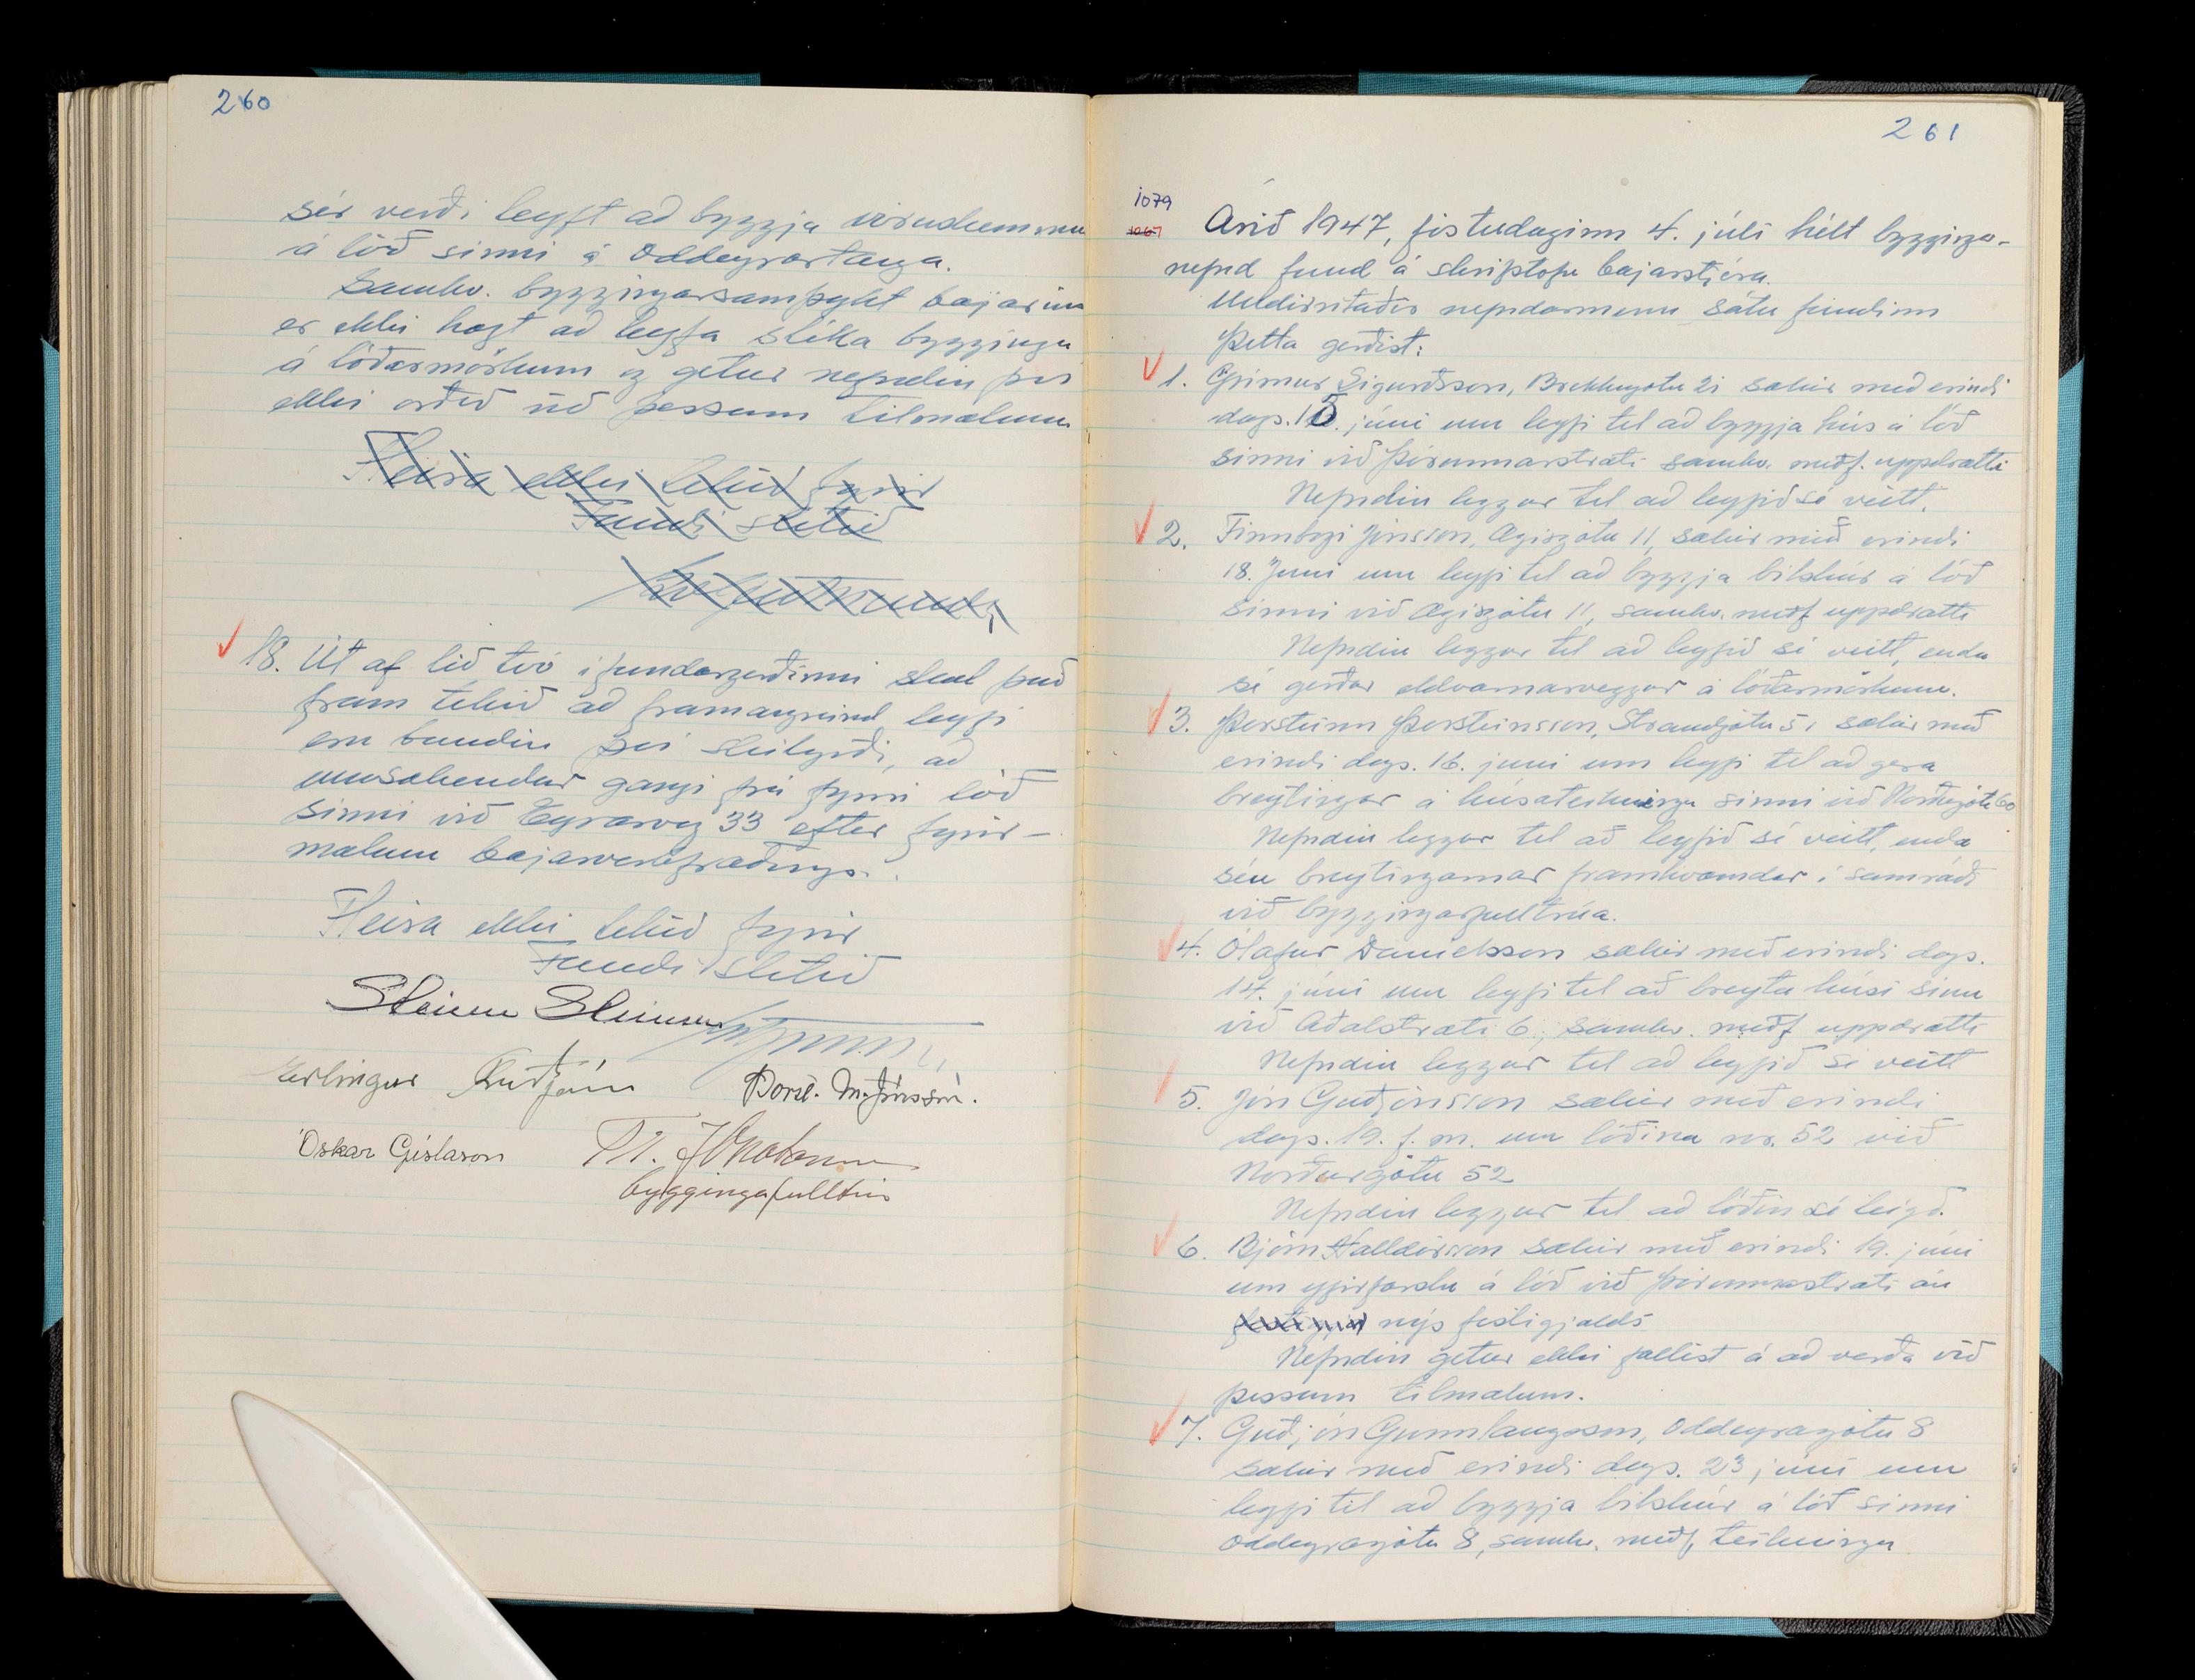 260
sér verði leyft að byggja vöruskemmu
á lóð sinni á Oddeyrartanga.
Samkv. byggingarsamþykt bæjarins
er ekki hægt að leyfa slíka byggingu
á lóðarmörkum og getur nefndin því
ekki orðið við þessum tilmælum.
Fleira ekki tekið fyrir
Fundi slitið
18. Út af lið tvö í fundargerðinni skal það
fram tekið að framangreind leyfi
eru bundin því skilyrði, að
umsækendur gangi frá fyrri lóð
sinni við Eyrarveg 33 eftir fyrir-
mælum bæjarverkfræðings.
Fleira ekki tekið fyrir
Fundi slitið
Steinn Steinsen
Erlingur Friðjóns
Þorst. M. Jónsson.
Óskar Gíslason
byggingafulltrúi
261
1079
1067
Árið 1947, föstudaginn 4. júlí hélt bygginga-
nefnd fund á skrifstofu bæjarstjóra.
Undirritaðir nefndarmenn sátu fundinn
Þetta gerðist:
1. Grímur Sigurðsson, Brekkugötu 21 sækir með erindi
dags. 15. júní um leyfi til að byggja hús á lóð
sinni við Þórunnarstræti samkv. meðf. uppdrætti
Nefndin leggur til að leyfið sé veitt.
2. Finnbogi Jónsson, Ægisgötu 11, sækir með erindi
18. Júní um leyfi til að byggja bílskúr á lóð
sinni við Ægisgötu 11, samkv. meðf uppdrætti
Nefndin leggur til að leyfið sé veitt, enda
sé gerður eldvarnarveggur á lóðarmörkum.
3. Þorsteinn Þorsteinsson, Strandgötu 51 sækir með
erindi dags. 16. júní um leyfi til að gera
breytingar á húsateikningu sinni við Norðurgötu 60
Nefndin leggur til að leyfið sé veitt, enda
séu breytingarnar framkvæmdar í samráði
við byggingarfulltrúa.
4. Ólafur Daníelsson sækir með erindi dags.
14. júní um leyfi til að breyta húsi sínu
við Aðalstræti 6, samkv. meðf uppdrætti
Nefndin leggur til að leyfið sé veitt
5. Jón Guðjónsson sækir með erindi
dags. 19. f. m. um lóðina nr. 52 við
Norðurgötu 52
Nefndin leggur til að lóðin sé leigð.
6. Björn Halldórsson sækir með erindi 19. júní
um yfirfærslu á lóð við Þórunnarstræti án
nýs festigjalds
Nefndin getur ekki fallist á að verða við
þessum tilmælum.
7. Guðjón Gunnlaugsson, Oddeyragötu 8
sækir með erindi dags. 23 júní um
leyfi til að byggja bílskúr á lóð sinni
Oddeyragötu 8, samkv. meðf, teikningu